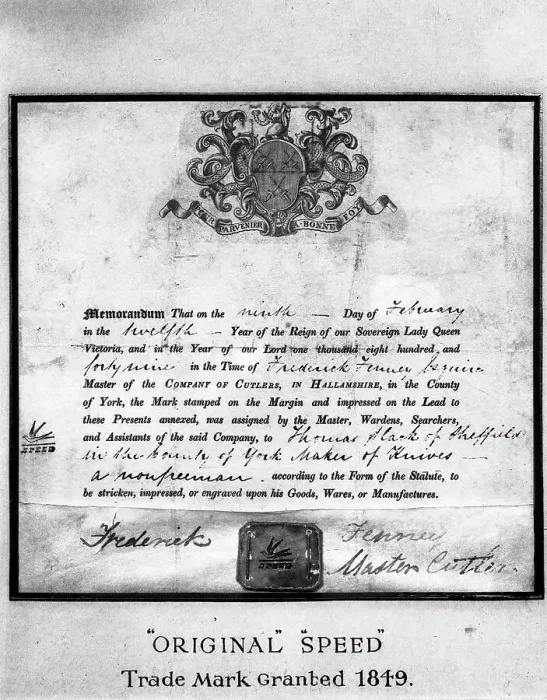 POUR PARVENIR A BONNE FOY
Memorandum That on the ninth — Day of February
in the twelfth — Year of the Reign of our Sovereign Lady Queen
Victoria, and in the Year of our Lord one thousand eight hundred and
forty nine in the Time of Frederick Fenney Esquire
Master of the COMPANY OF CUTLERS, IN HALLAMSHIRE, in the County
of York, the Mark stamped on the Margin and impressed on the Lead to
these Presents annexed, was assigned by the Master, Wardens, Searchers,
and Assistants of the said Company, to Thomas Slack of Sheffield
SPEED
in the County of York Maker of Knives —
a nonfreeman . according to the Form of the Statute, to
be stricken, impressed, or engraved upon his Goods, Wares, or Manufactures.
Frederick Fenney
SPEED
Master Cutler.
"ORIGINAL" "SPEED"
Trade Mark Granted 1849.